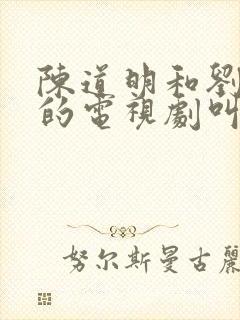 陳道明和劉
的電視劇叫
努尔斯曼古麗